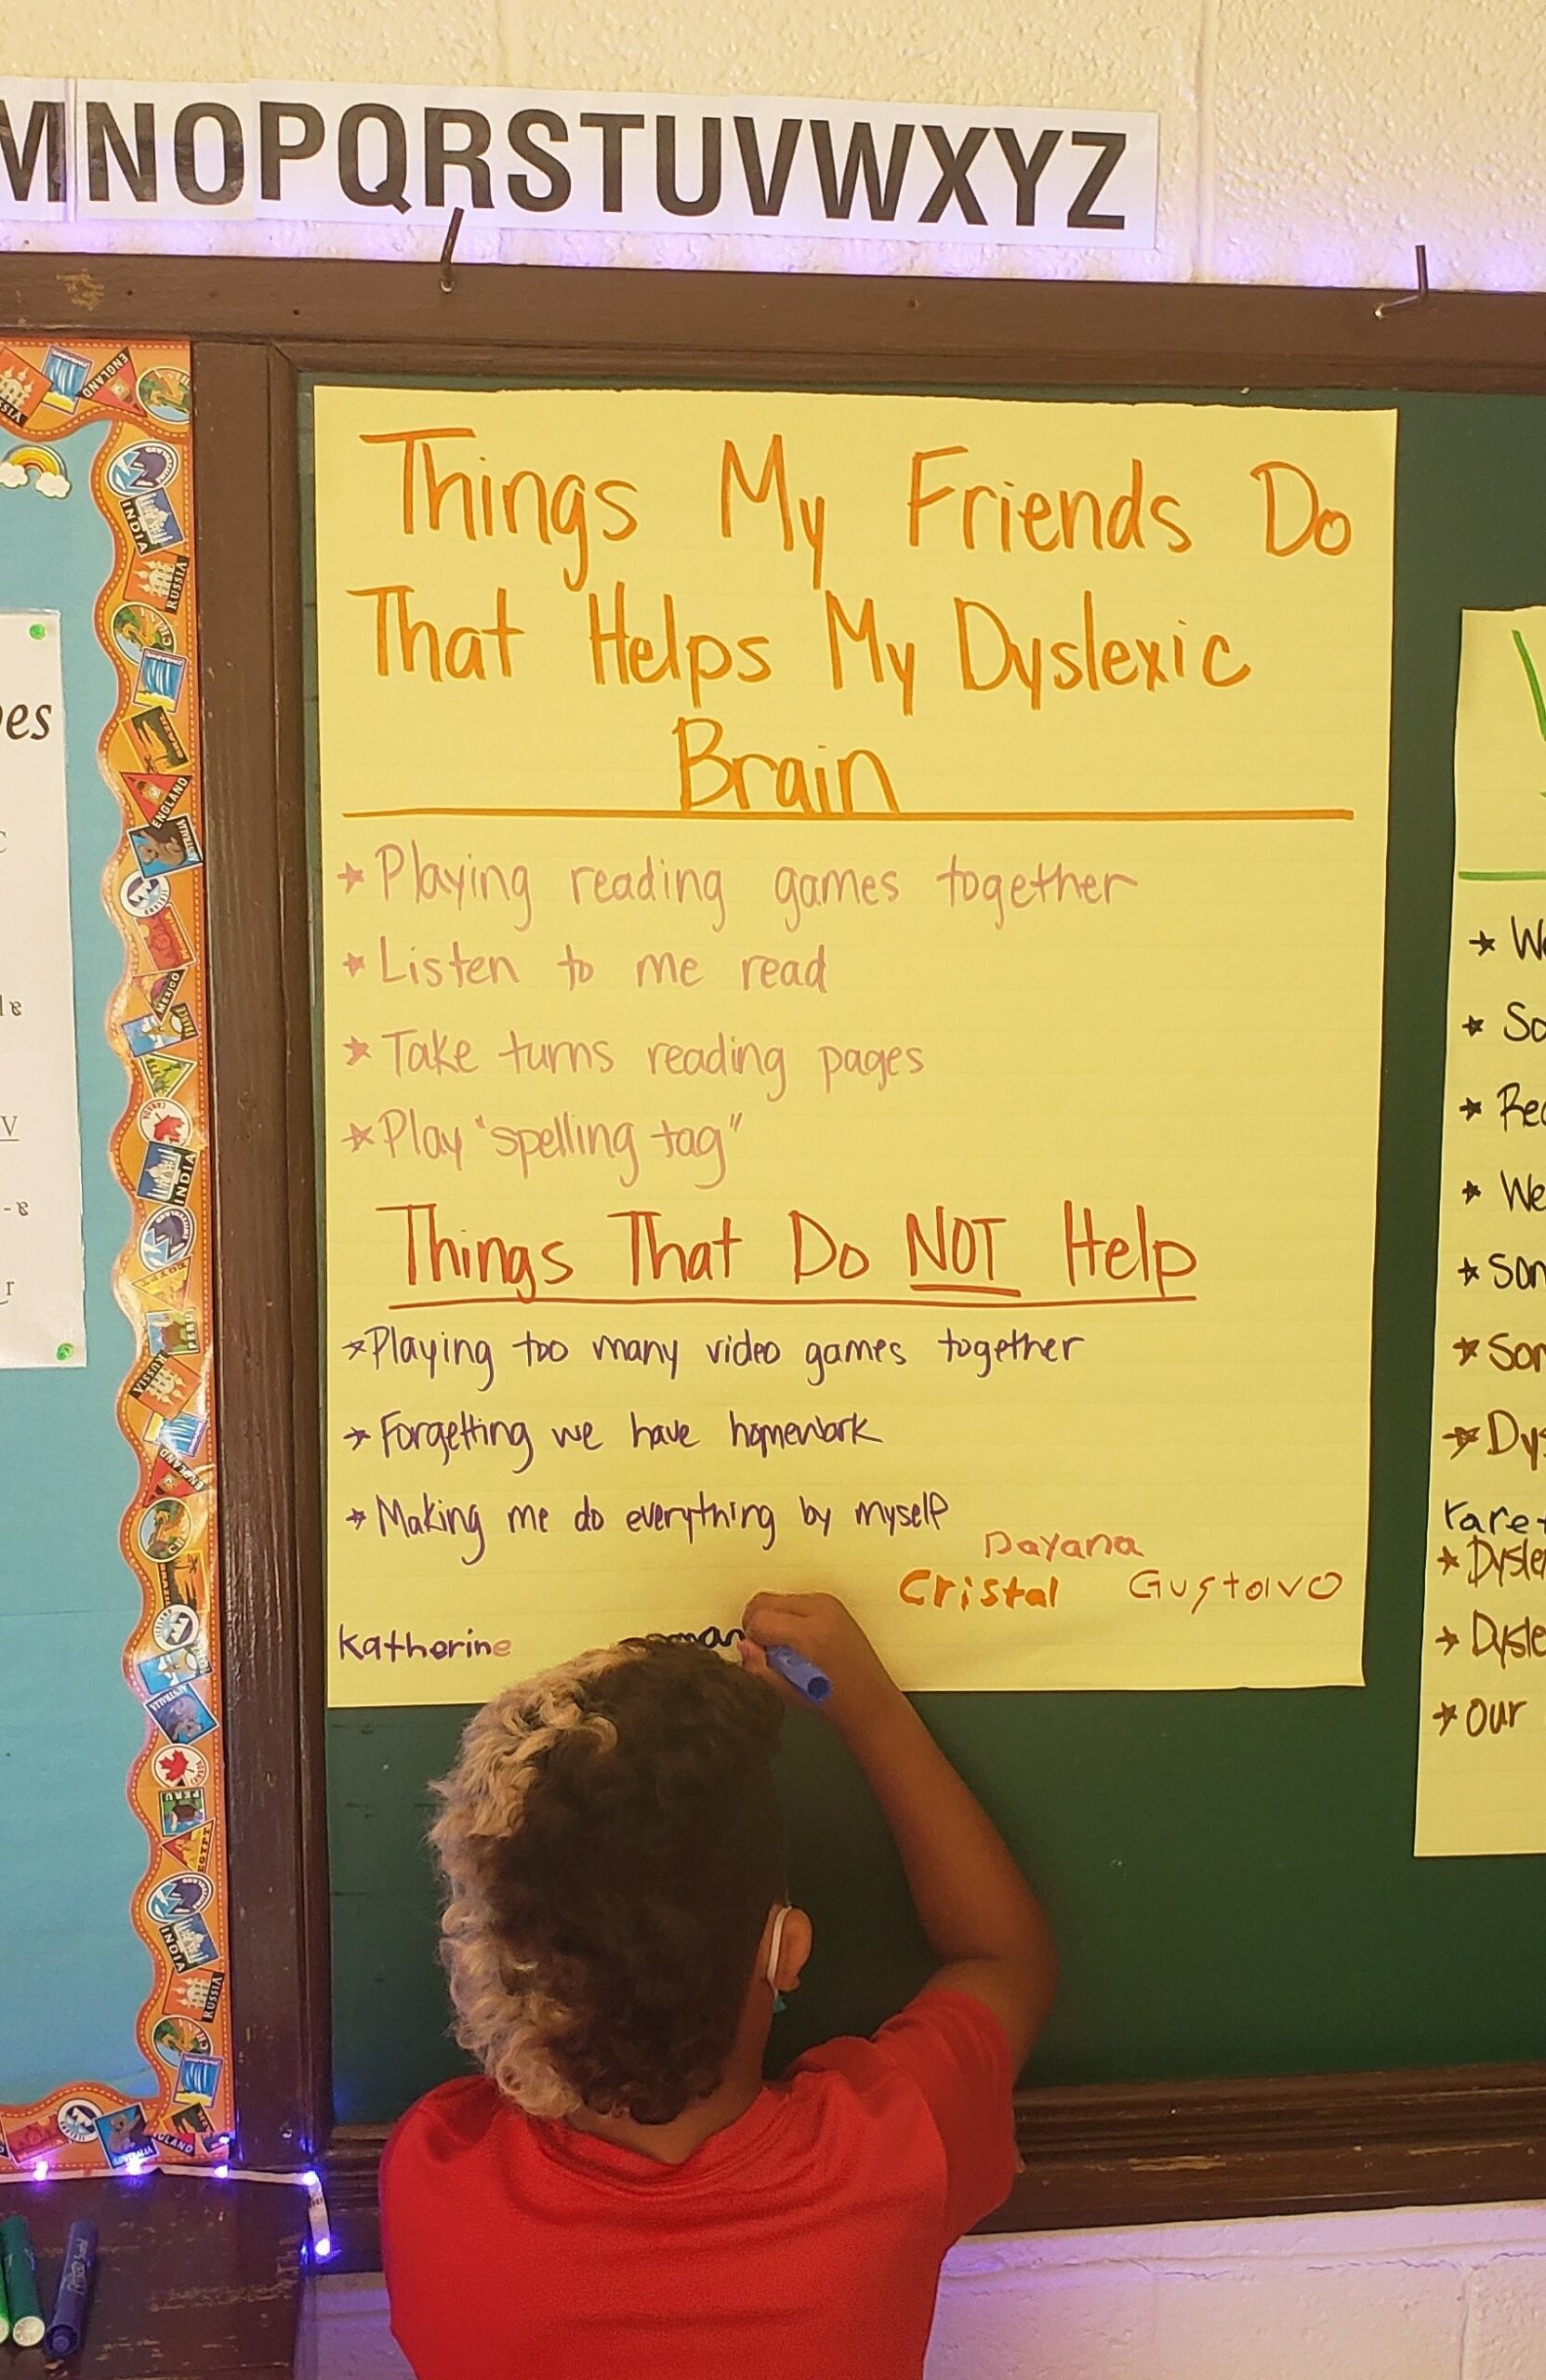 MNOPQRSTUVWXYZ
Things My Friends Do
That Helps My Dyslexic
Brain
* Playing reading games together
* Listen to me read
* Take turns reading pages
* Play "spelling tag"
Things That Do NOT Help
* Playing too many video games together
* Forgetting we have homework
* Making me do everything by myself
Dayana
Cristal Gustavo
Katherine
ENGLAND
INDIA
RUSSIA
ENGLAND
AUSTRALIA
MEXICO
CANADA
INDIA
EGYPT
PERU
RUSSIA
ENGLAND
AUSTRALIA
PERU
EGYPT
INDIA
RUSSIA
* We
* Our